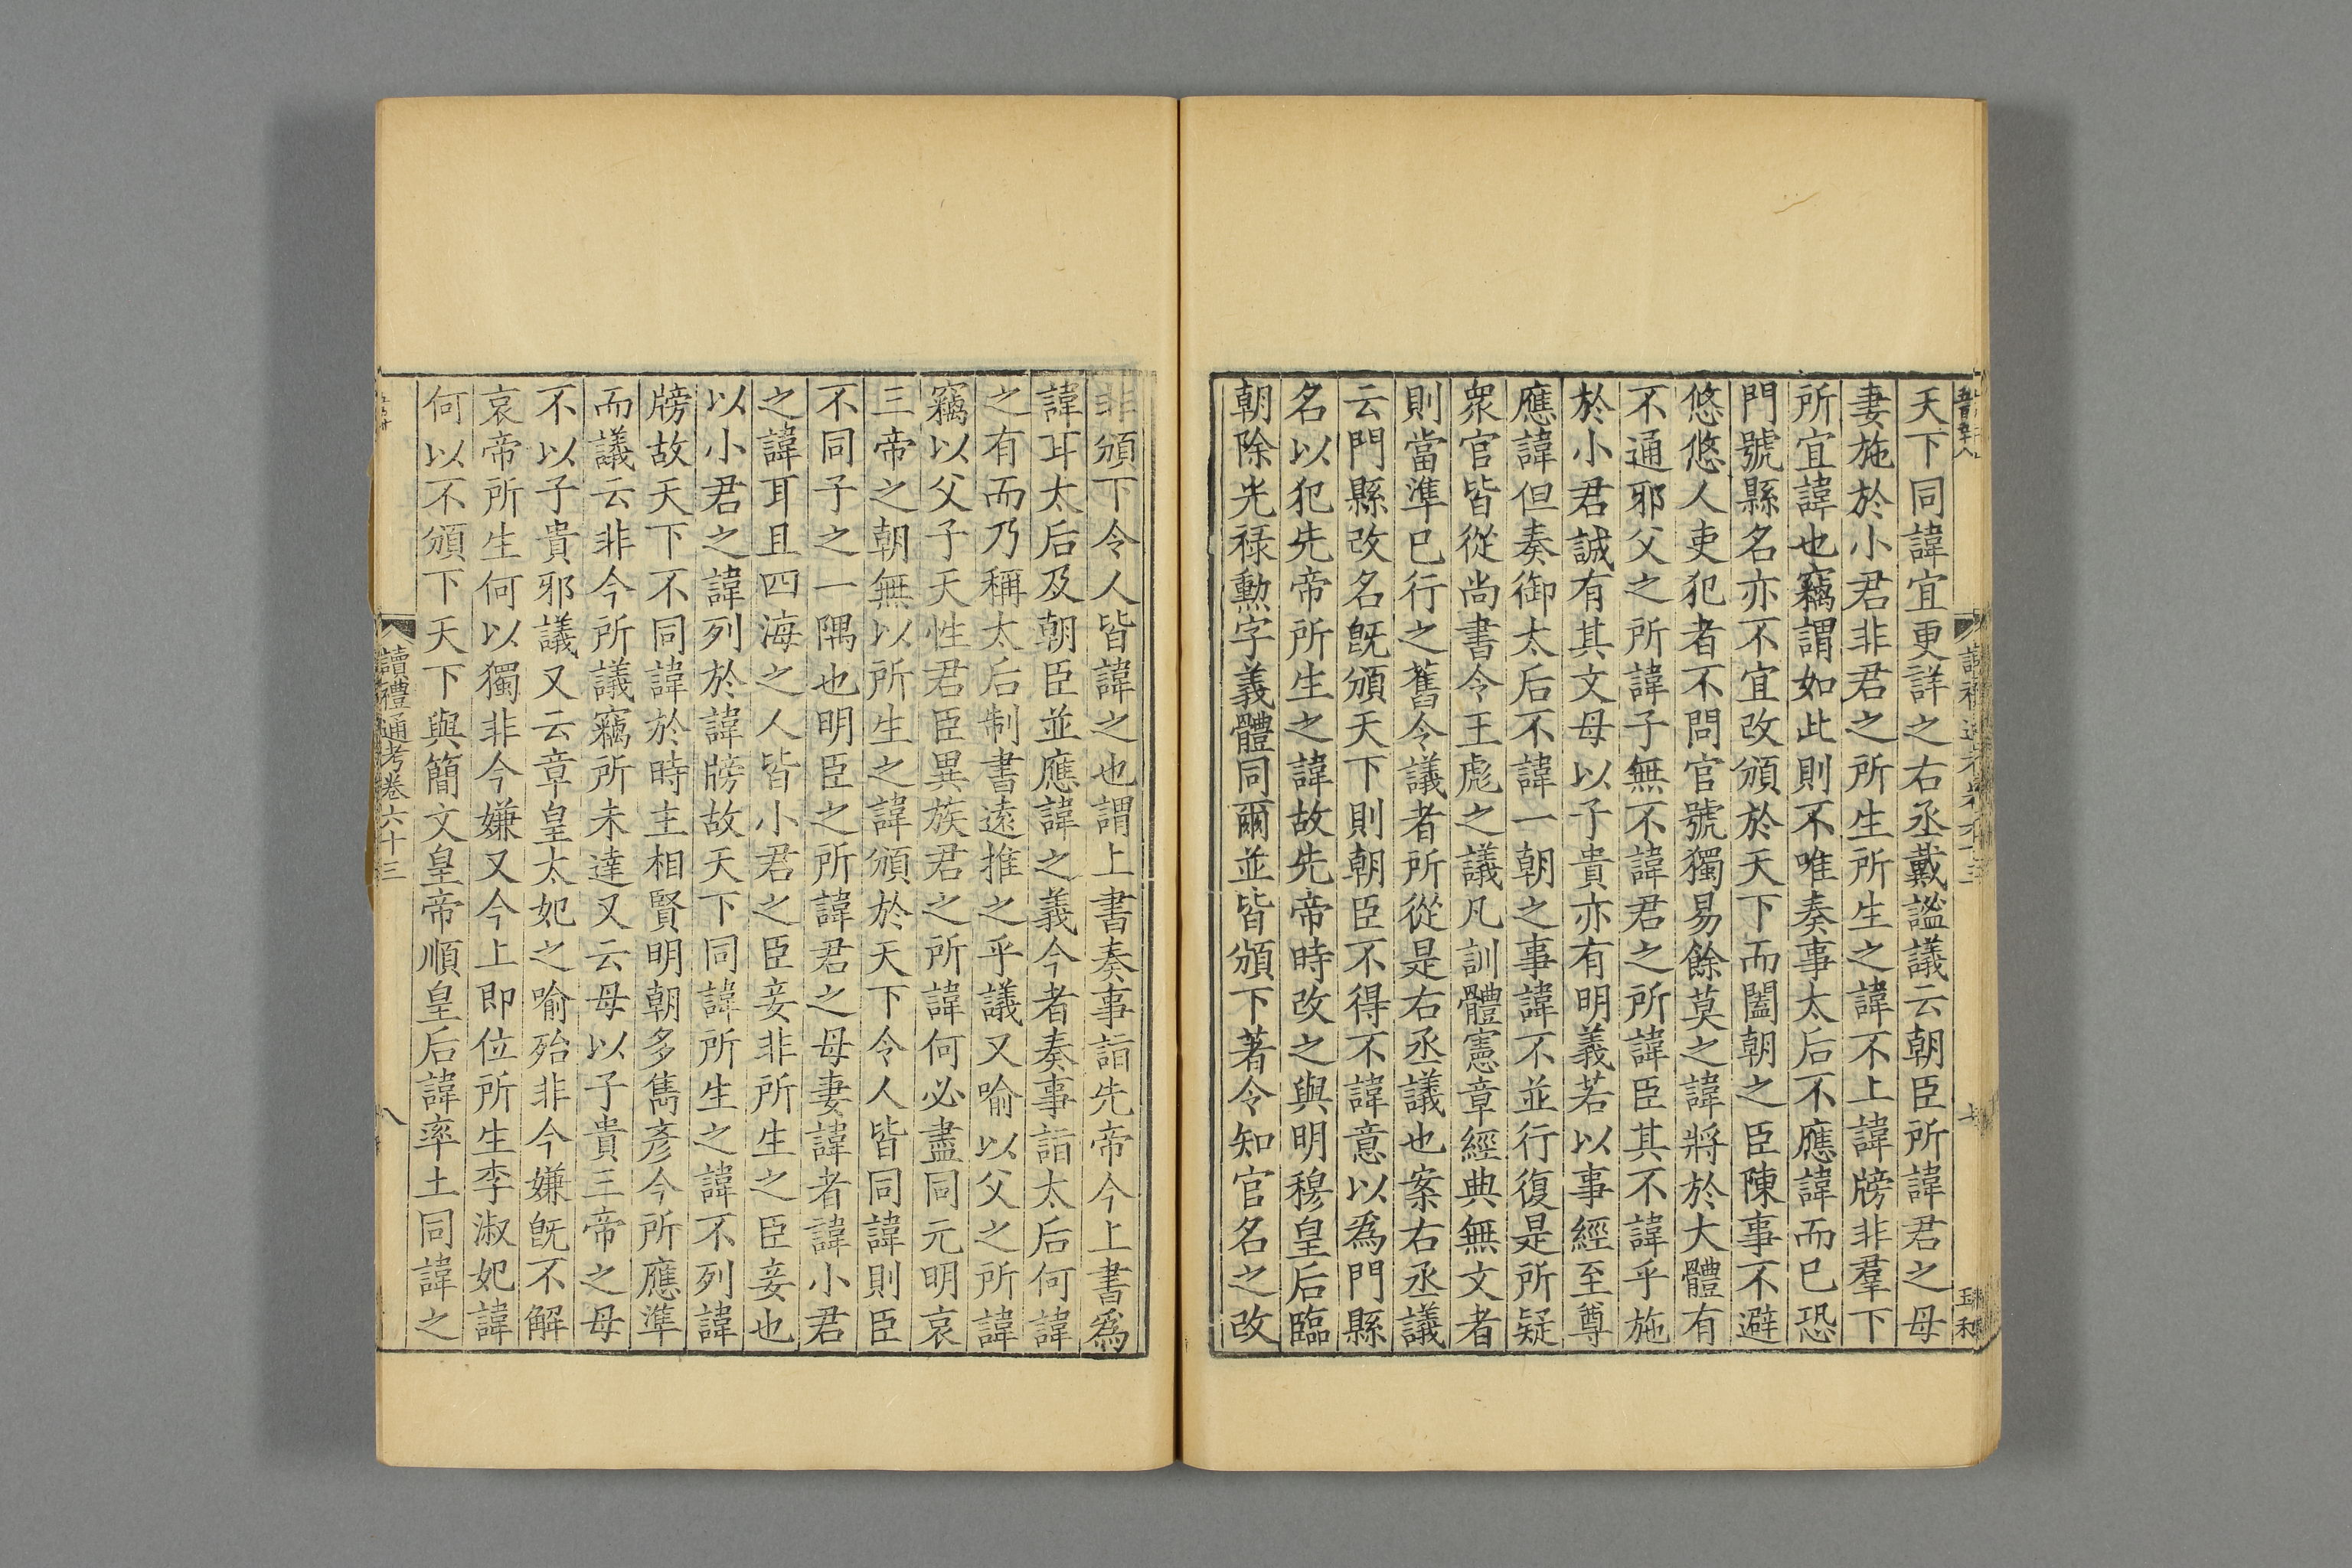 天下同諱宜更詳之右丞戴謐議云朝臣所諱君之母
妻施於小君非君之所生所生之諱不上諱牓非羣下
所宜諱也竊謂如此則不唯奏事太后不應諱而已恐
門號縣名亦不宜改頒於天下而闔朝之臣陳事不避
悠悠人吏犯者不問官號獨易餘莫之諱將於大體有
不通邪父之所諱子無不諱君之所諱臣其不諱乎施
於小君誠有其文母以子貴亦有明義若以事經至尊
應諱但奏御太后不諱一朝之事諱不並行復是所疑
衆官皆從尚書令王彪之議凡訓體憲章經典無文者
則當準已行之舊令議者所從是右丞議也案右丞議
云門縣改名旣頒天下則朝臣不得不諱意以爲門縣
名以犯先帝所生之諱故先帝時改之與明穆皇后臨
朝除光祿勲字義體同爾並皆頒下著令知官名之改
非頒下令人皆諱之也謂上書奏事詣先帝今上書爲
諱耳太后及朝臣並應諱之義今者奏事詣太后何諱
之有而乃稱太后制書遠推之乎議又喻以父之所諱
竊以父子天性君臣異族君之所諱何必盡同元明哀
三帝之朝無以所生之諱頒於天下令人皆同諱則臣
不同子之一隅也明臣之所諱君之母妻諱者諱小君
之諱耳且四海之人皆小君之臣妾非所生之臣妾也
以小君之諱列於諱牓故天下同諱所生之諱不列諱
牓故天下不同諱於時主相賢明朝多雋彥今所應準
而議云非今所議竊所未達又云母以子貴三帝之母
不以子貴邪議又云章皇太妃之喻殆非今嫌旣不解
哀帝所生何以獨非今嫌又今上即位所生李淑妃諱
何以不頒下天下與簡文皇帝順皇后諱率土同諱之
讀禮通考卷六十三
八